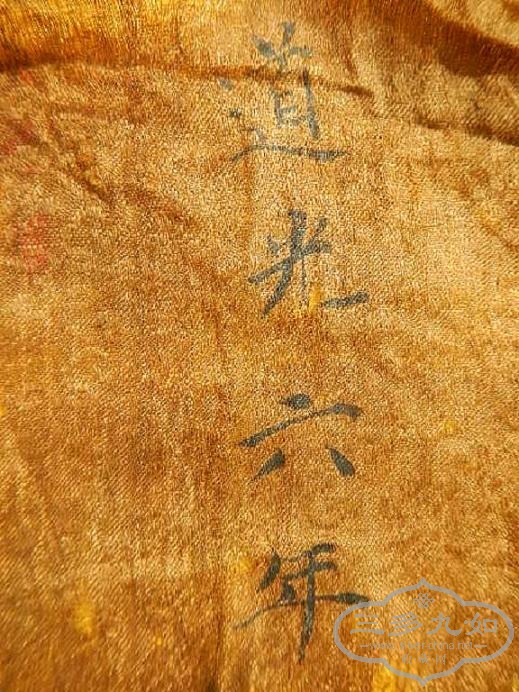 道光六年
三多九如